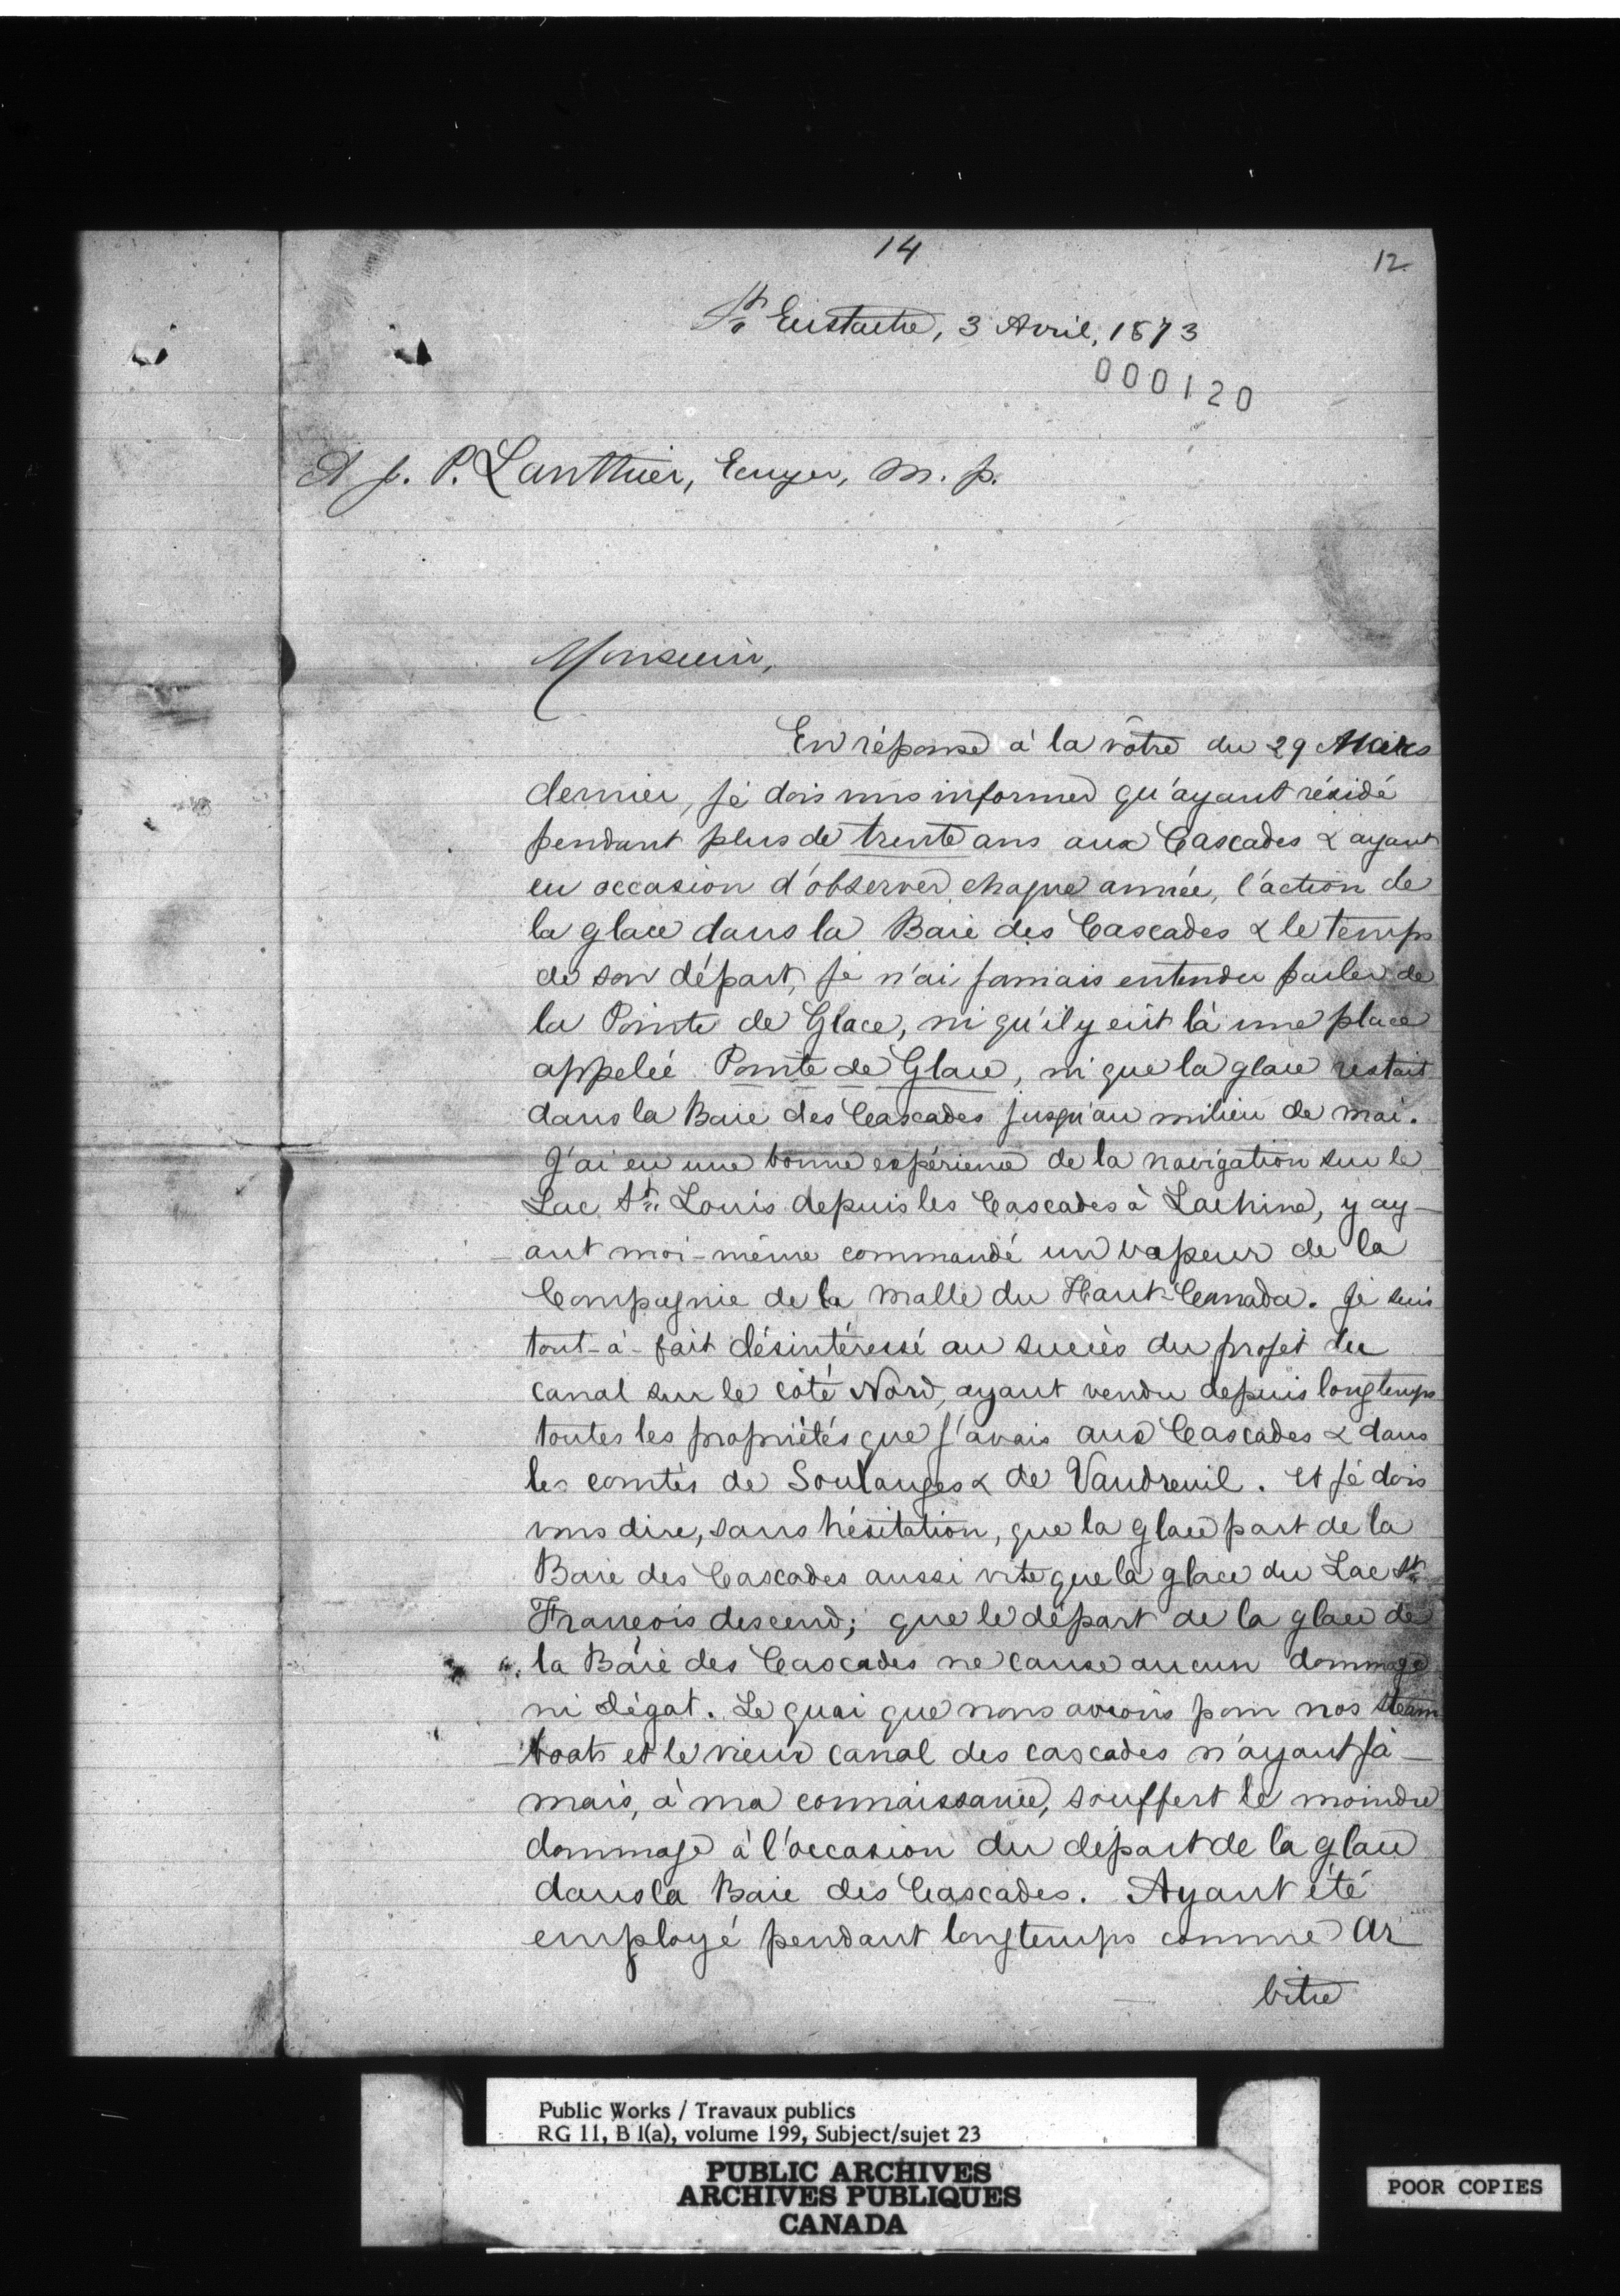 14
12
St Eustache, 3 Avril, 1873
000120
A J. P. Lanthier, Ecuyer, M. P.
Monsieur,
En réponse à la vôtre du 29 Mars
dernier, je dois vous informer qu'ayant résidé
pendant plus de trente ans aux Cascades & ayant
eu occasion d'observer, chaque année, l'action de
la glace dans la Baie des Cascades & le temps
de son départ, je n'ai jamais entendu parler de
la Pointe de Glace, ni qu'il y eût là une place
appelée Pointe de Glace, ni que la glace restait
dans la Baie des Cascades jusqu'au milieu de mai.
J'ai eu une bonne expérience de la navigation sur le
Lac St. Louis depuis les Cascades à Lachine, y ay-
ant moi-même commandé un vapeur de la
Compagnie de la malle du Haut-Canada. Je suis
tout-à-fait désintéressé au succès du projet du
canal sur le côté Nord, ayant vendu depuis longtemps
toutes les propriétés que j'avais aux Cascades & dans
les comtés de Soulanges & de Vaudreuil. Et je dois
vous dire, sans hésitation, que la glace part de la
Baie des Cascades aussi vite que la glace du Lac St.
François descend; que le départ de la glace de
la Baie des Cascades ne cause aucun dommage
ni dégat. Le quai que nous avions pour nos steam
-boats et le vieux canal des cascades n'ayant ja-
mais, à ma connaissance, souffert le moindre
dommage à l'occasion du départ de la glace
dans la Baie des Cascades. Ayant été
employé pendant longtemps comme Ar
bitre
Public Works / Travaux publics
RG 11, B 1(a), volume 199, Subject/sujet 23
PUBLIC ARCHIVES
ARCHIVES PUBLIQUES
CANADA
POOR COPIES